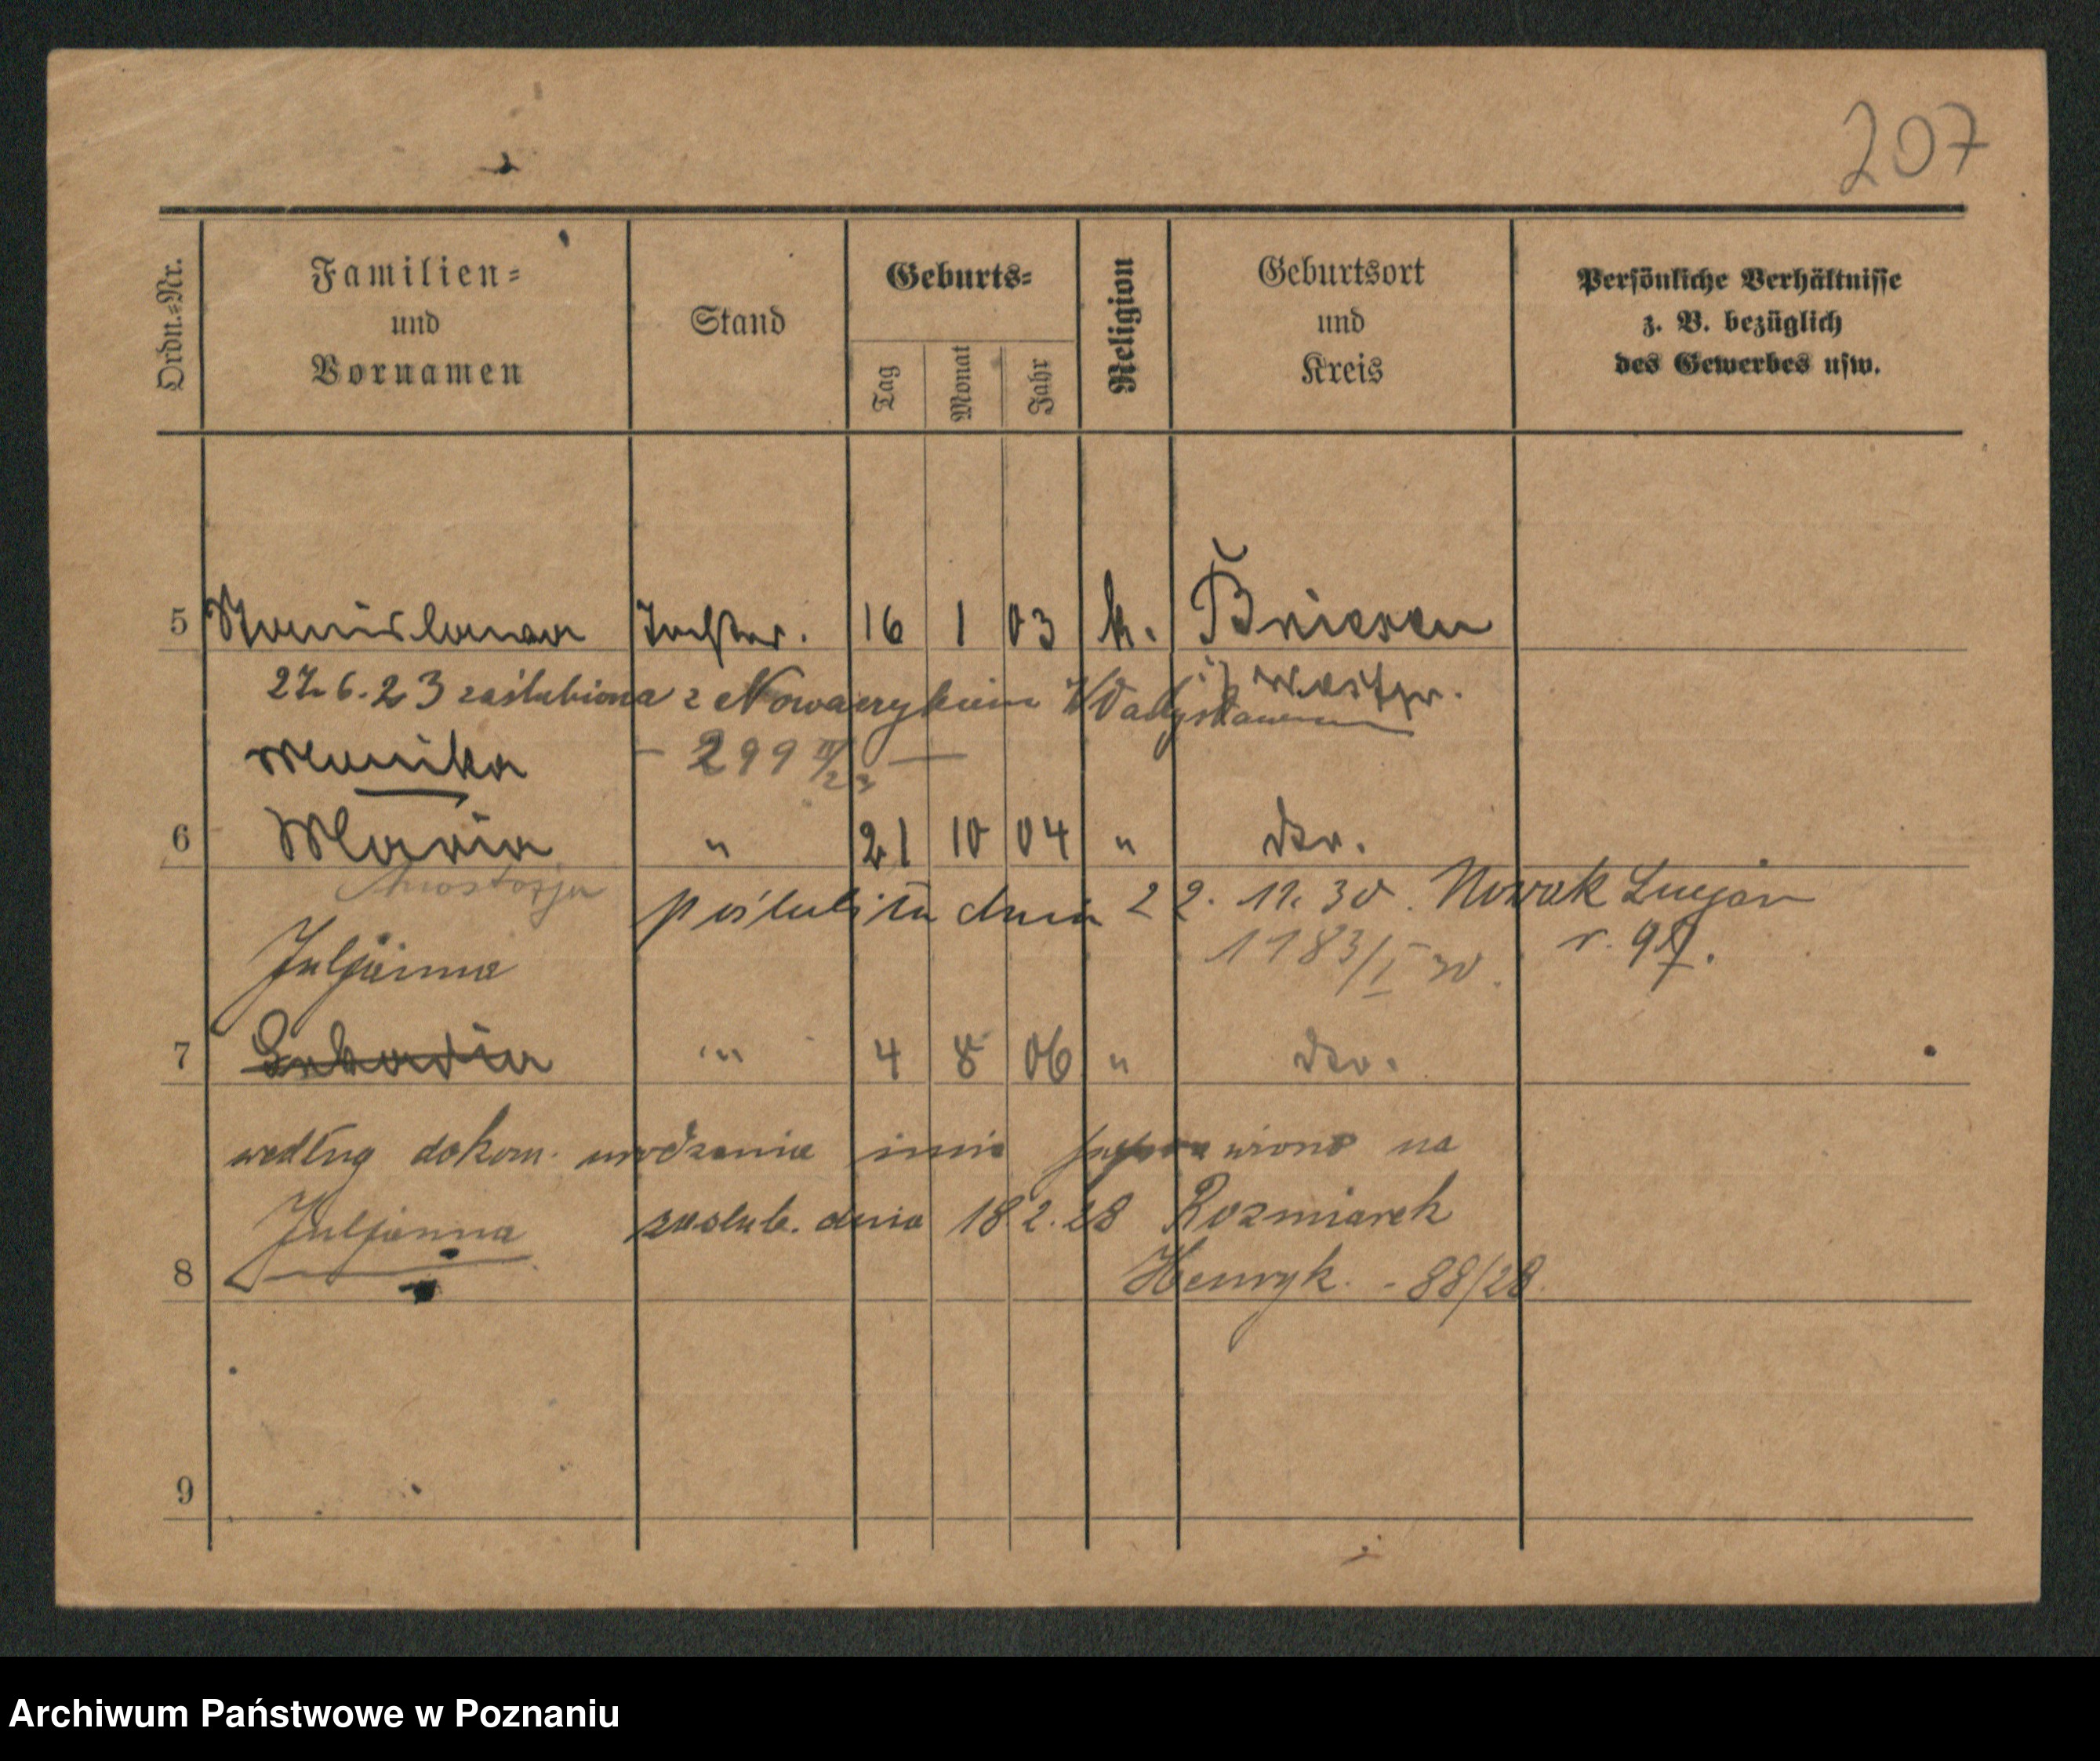 207
Ordn.-Nr.
Familien-
und
Vornamen
Stand
Geburts-
Tag
Monat
Jahr
Religion
Geburtsort
und
Kreis
Persönliche Verhältnisse
z. B. bezüglich
des Gewerbes usw.
5 Stanislawa Tochter. 16 1 03 k. Briesen
i/ Westpr.
27.6.23 zaślubiona z Nowaczykiem Władysławem
Monika – 299 III/23 —
6 Maria " 21 10 04 " dto.
Anastazja
poślubiła dnia 22. 11. 30. Nowak Lucjan
Juljanna 1183/I 30. r. 97.
7 Leokadia " 4 8 06 " dto.
według dokum. urodzenia imię poprawiono na
Juljanna zaslub. dnia 18 2. 28 Rozmiarek
8 Henryk. - 88/28.
9
Archiwum Państwowe w Poznaniu